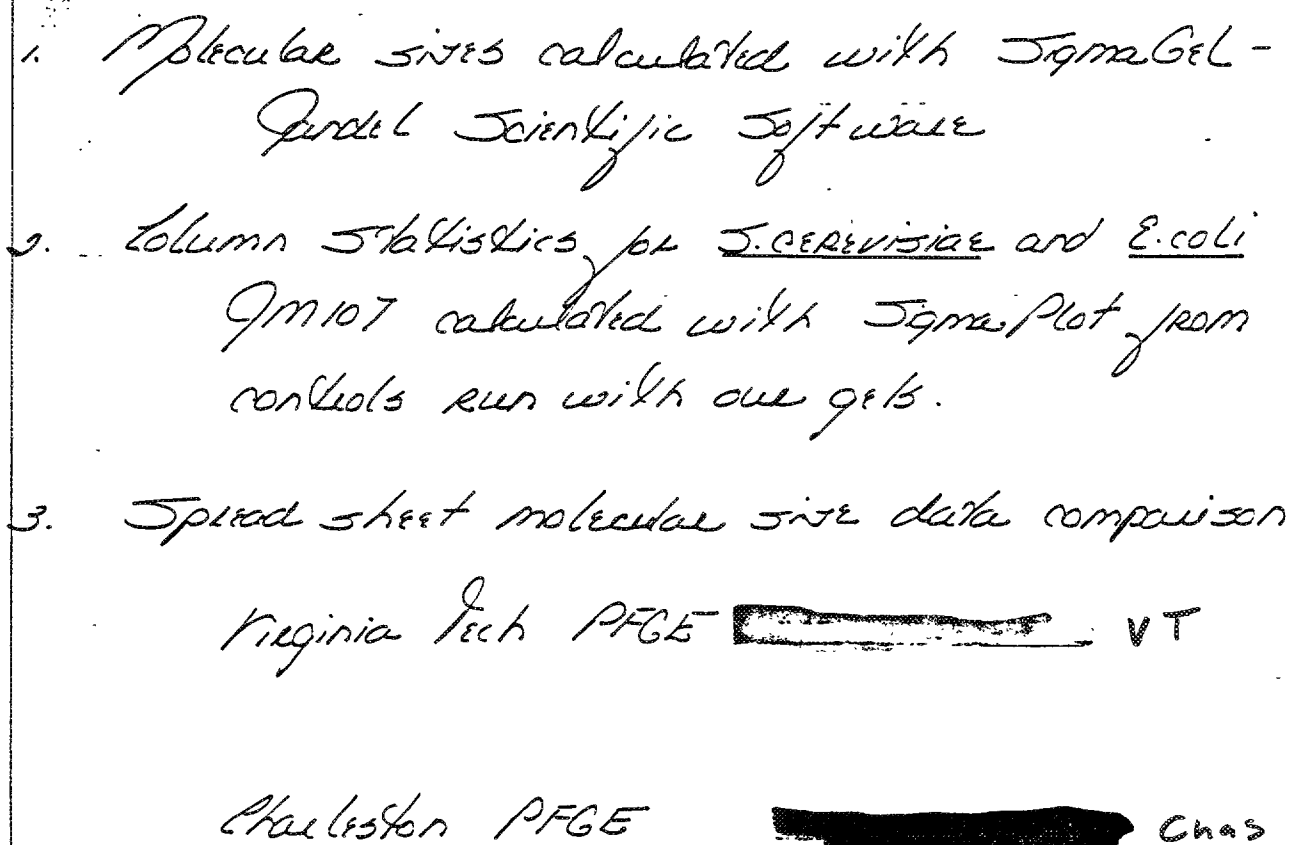 1. Molecular sizes calculated with SigmaGel-
Jandel Scientific Software
2. Column Statistics for S. cerevisiae and E. coli
JM107 calculated with SigmaPlot from
controls run with our gels.
3. Spread sheet molecular size data comparison
Virginia Tech PFGE VT
Charleston PFGE Chas